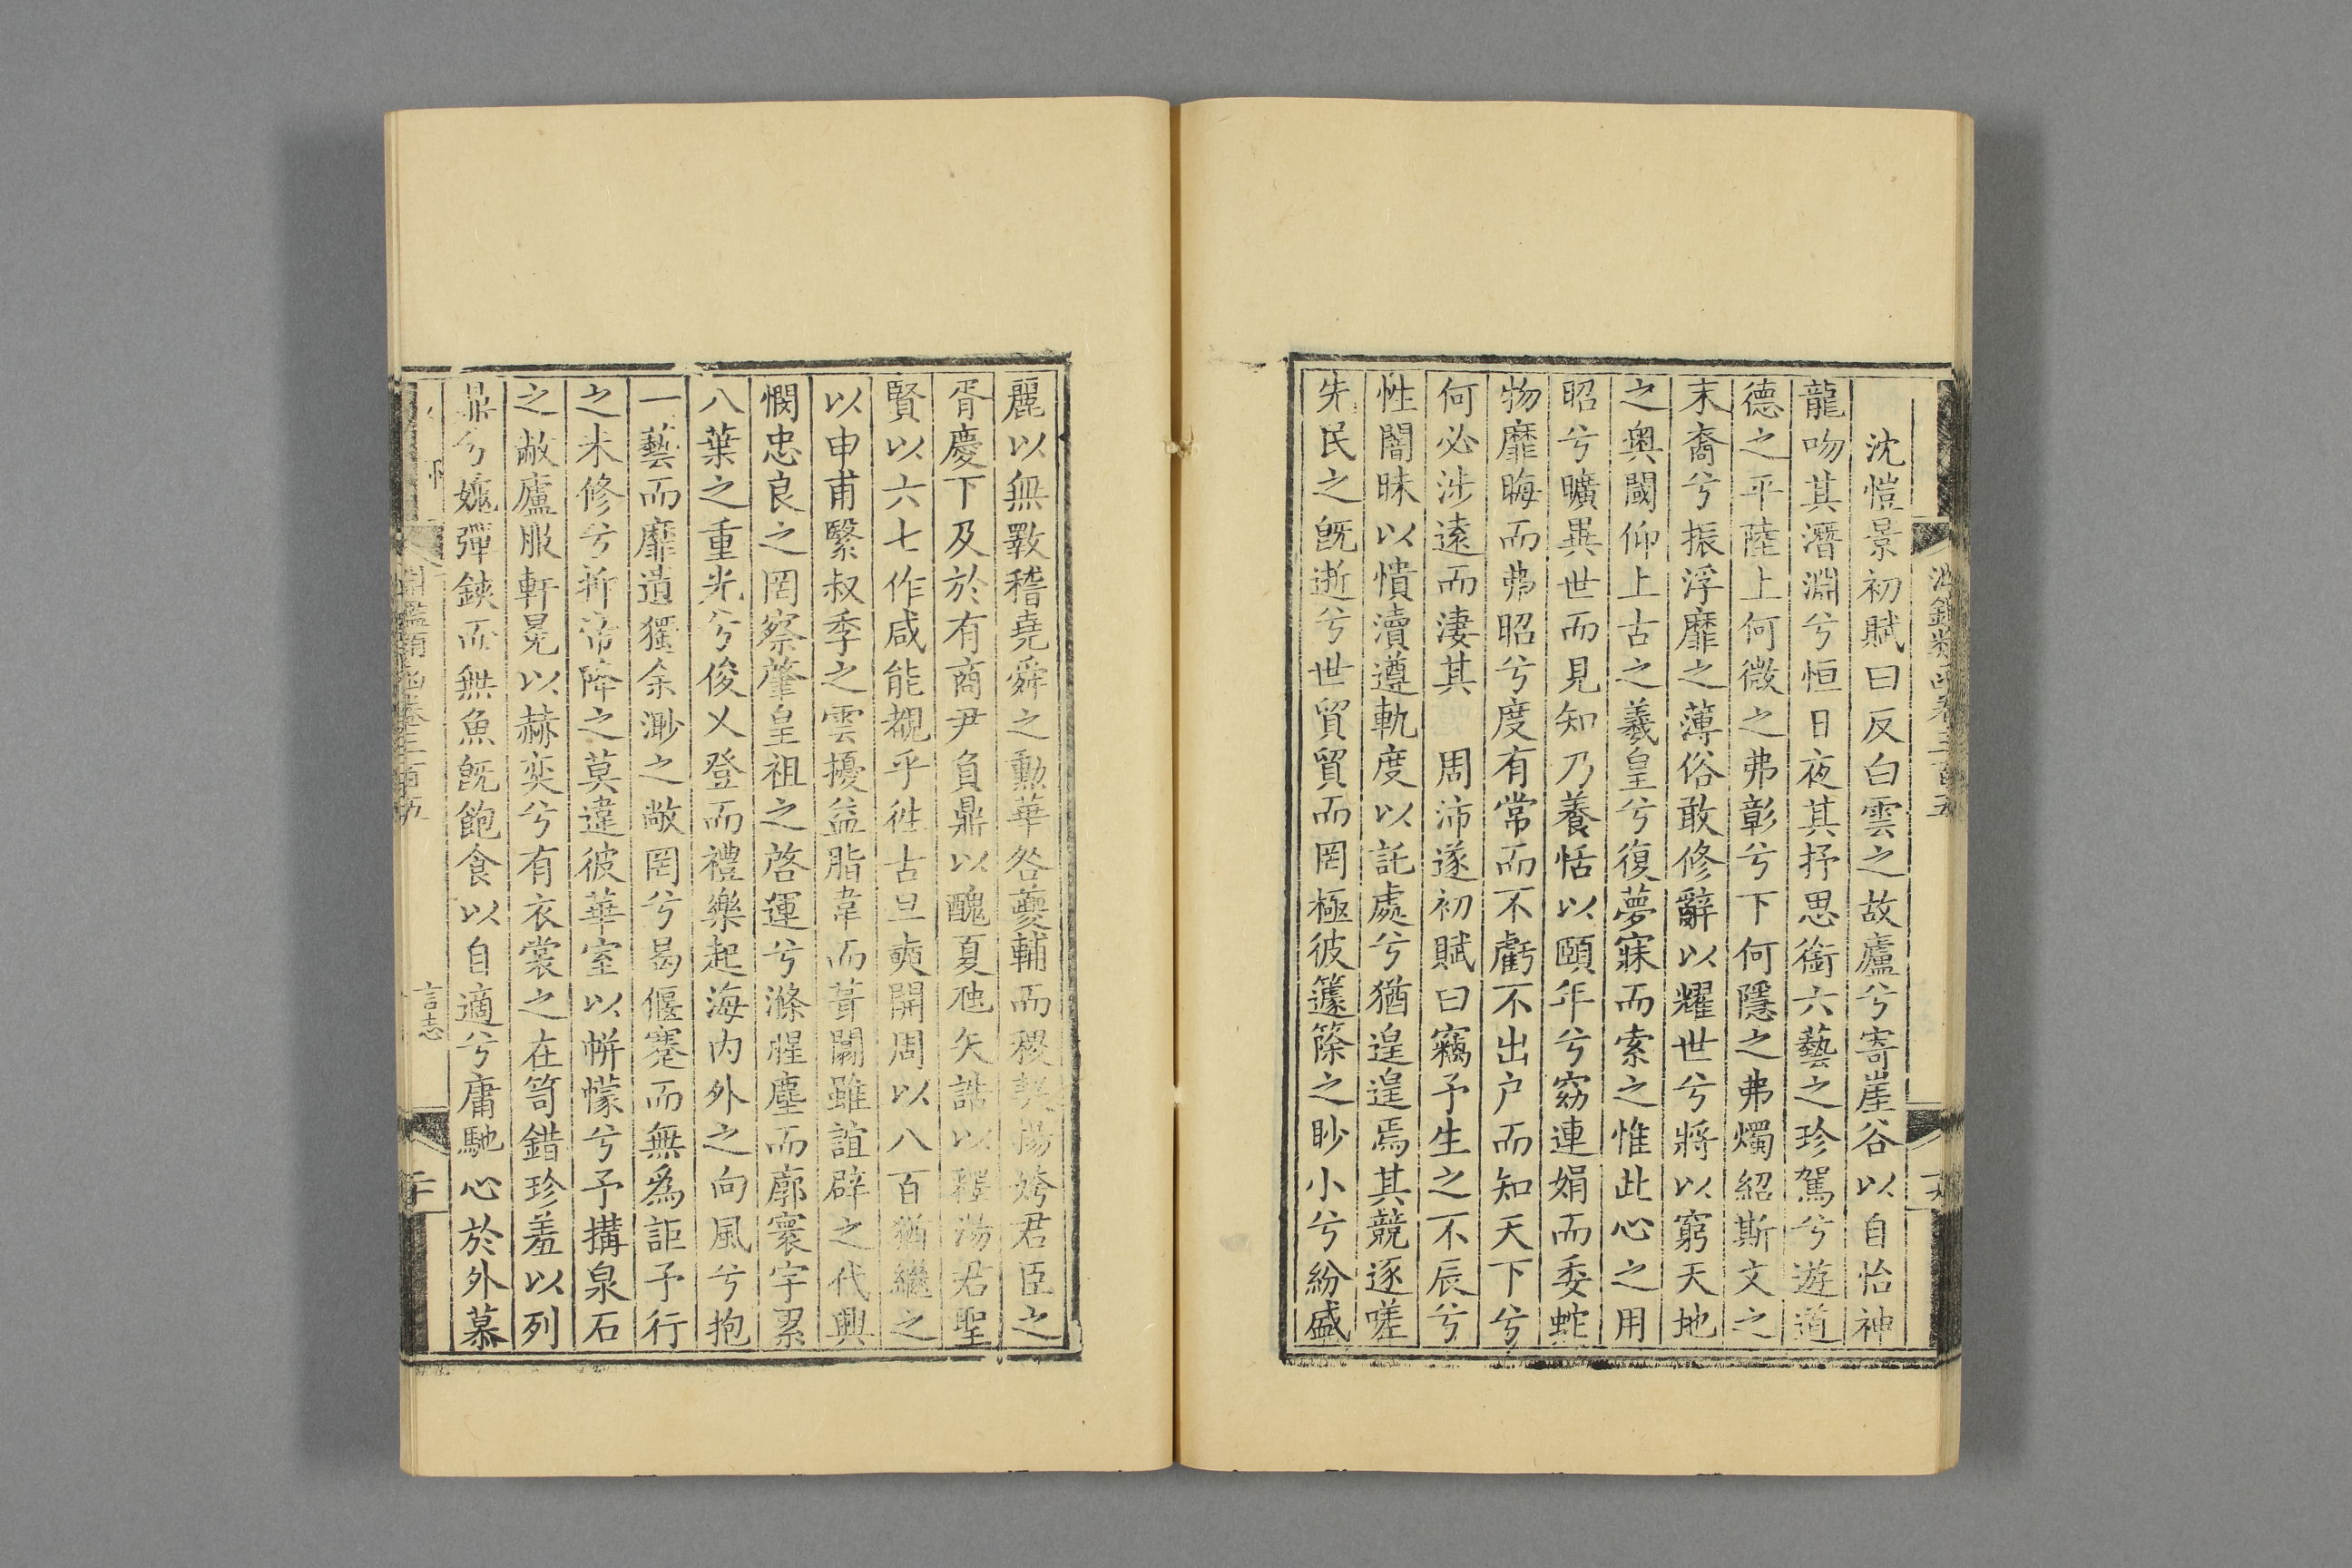 淵鑑類函卷三百五
沈愷景初賦曰反白雲之故廬兮寄崖谷以自怡神
龍吻其潛淵兮恒日夜其抒思銜六藝之珍駕兮遊道
德之平陸上何微之弗彰兮下何隱之弗燭紹斯文之
末裔兮振浮靡之薄俗敢修辭以耀世兮將以窮天地
之奥閫仰上古之羲皇兮復夢寐而索之惟此心之用
昭兮曠異世而見知乃養恬以頤年兮窈連娟而委蛇
物靡晦而弗昭兮度有常而不虧不出户而知天下兮
何必涉遠而淒其 周沛遂初賦曰竊予生之不辰兮
性闇昧以憒瀆遵軌度以託處兮猶遑遑焉其競逐嗟
先民之旣逝兮世貿貿而罔極彼籧篨之眇小兮紛盛
麗以無斁稽堯舜之勳華咎夔輔而稷契揚姱君臣之
胥慶下及於有商尹負鼎以醜夏虺矢誥以程湯君聖
賢以六七作咸能覩乎徃古旦奭開周以八百猶繼之
以申甫緊叔季之雲擾益脂韋而葺闒雖誼辟之代興
憫忠良之罔察肇皇祖之啓運兮滌腥塵而廓寰宇累
八葉之重光兮俊乂登而禮樂起海内外之向風兮抱
一藝而靡遺獨余渺之敞罔兮曷偃蹇而無爲詎予行
之未修兮抑帝降之莫違彼華室以帡幪兮予搆泉石
之敝廬服軒冕以赫奕兮有衣裳之在笥錯珍羞以列
鼎兮媿彈鋏而無魚旣飽食以自適兮庸馳心於外慕
淵鑑類函卷三百五
言志
二十